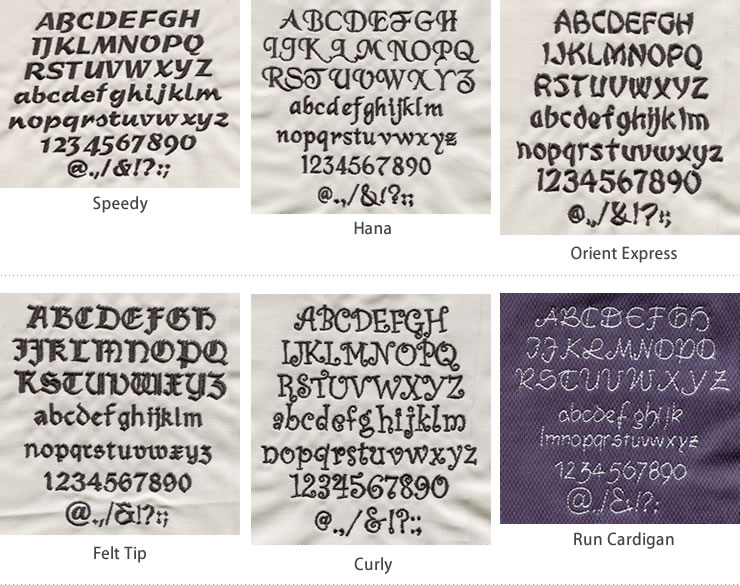 ABCDEFGH
IJKLMNOPQ
RSTUVWXYZ
abcdefghijklm
nopqrstuvwxyz
1234567890
@.,/&!?:;
Speedy
ABCDEFGH
IJKLMNOPQ
RSTUVWXYZ
abcdefghijklm
nopqrstuvwxyz
1234567890
@.,/&!?:;
Hana
ABCDEFGH
IJKLMNOPQ
RSTUVWXYZ
abcdefghijklm
nopqrstuvwxyz
1234567890
@.,/&!?:;
Orient Express
ABCDEFGH
IJKLMNOPQ
RSTUVWXYZ
abcdefghijklm
nopqrstuvwxyz
1234567890
@.,/&!?:;
Felt Tip
ABCDEFGH
IJKLMNOPQ
RSTUVWXYZ
abcdefghijklm
nopqrstuvwxyz
1234567890
@.,/&!?:;
Curly
ABCDEFGH
IJKLMNOPQ
RSTUVWXYZ
abcdefghijk
lmnopqrstuvwxyz
1234567890
@.,/&!?:;
Run Cardigan